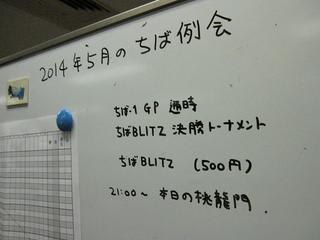 2014年5月のちば例会
ちば-1 GP 適時
ちばBLITZ 決勝トーナメント
ちばBLITZ (500円)
21:00〜 本日の桃龍門